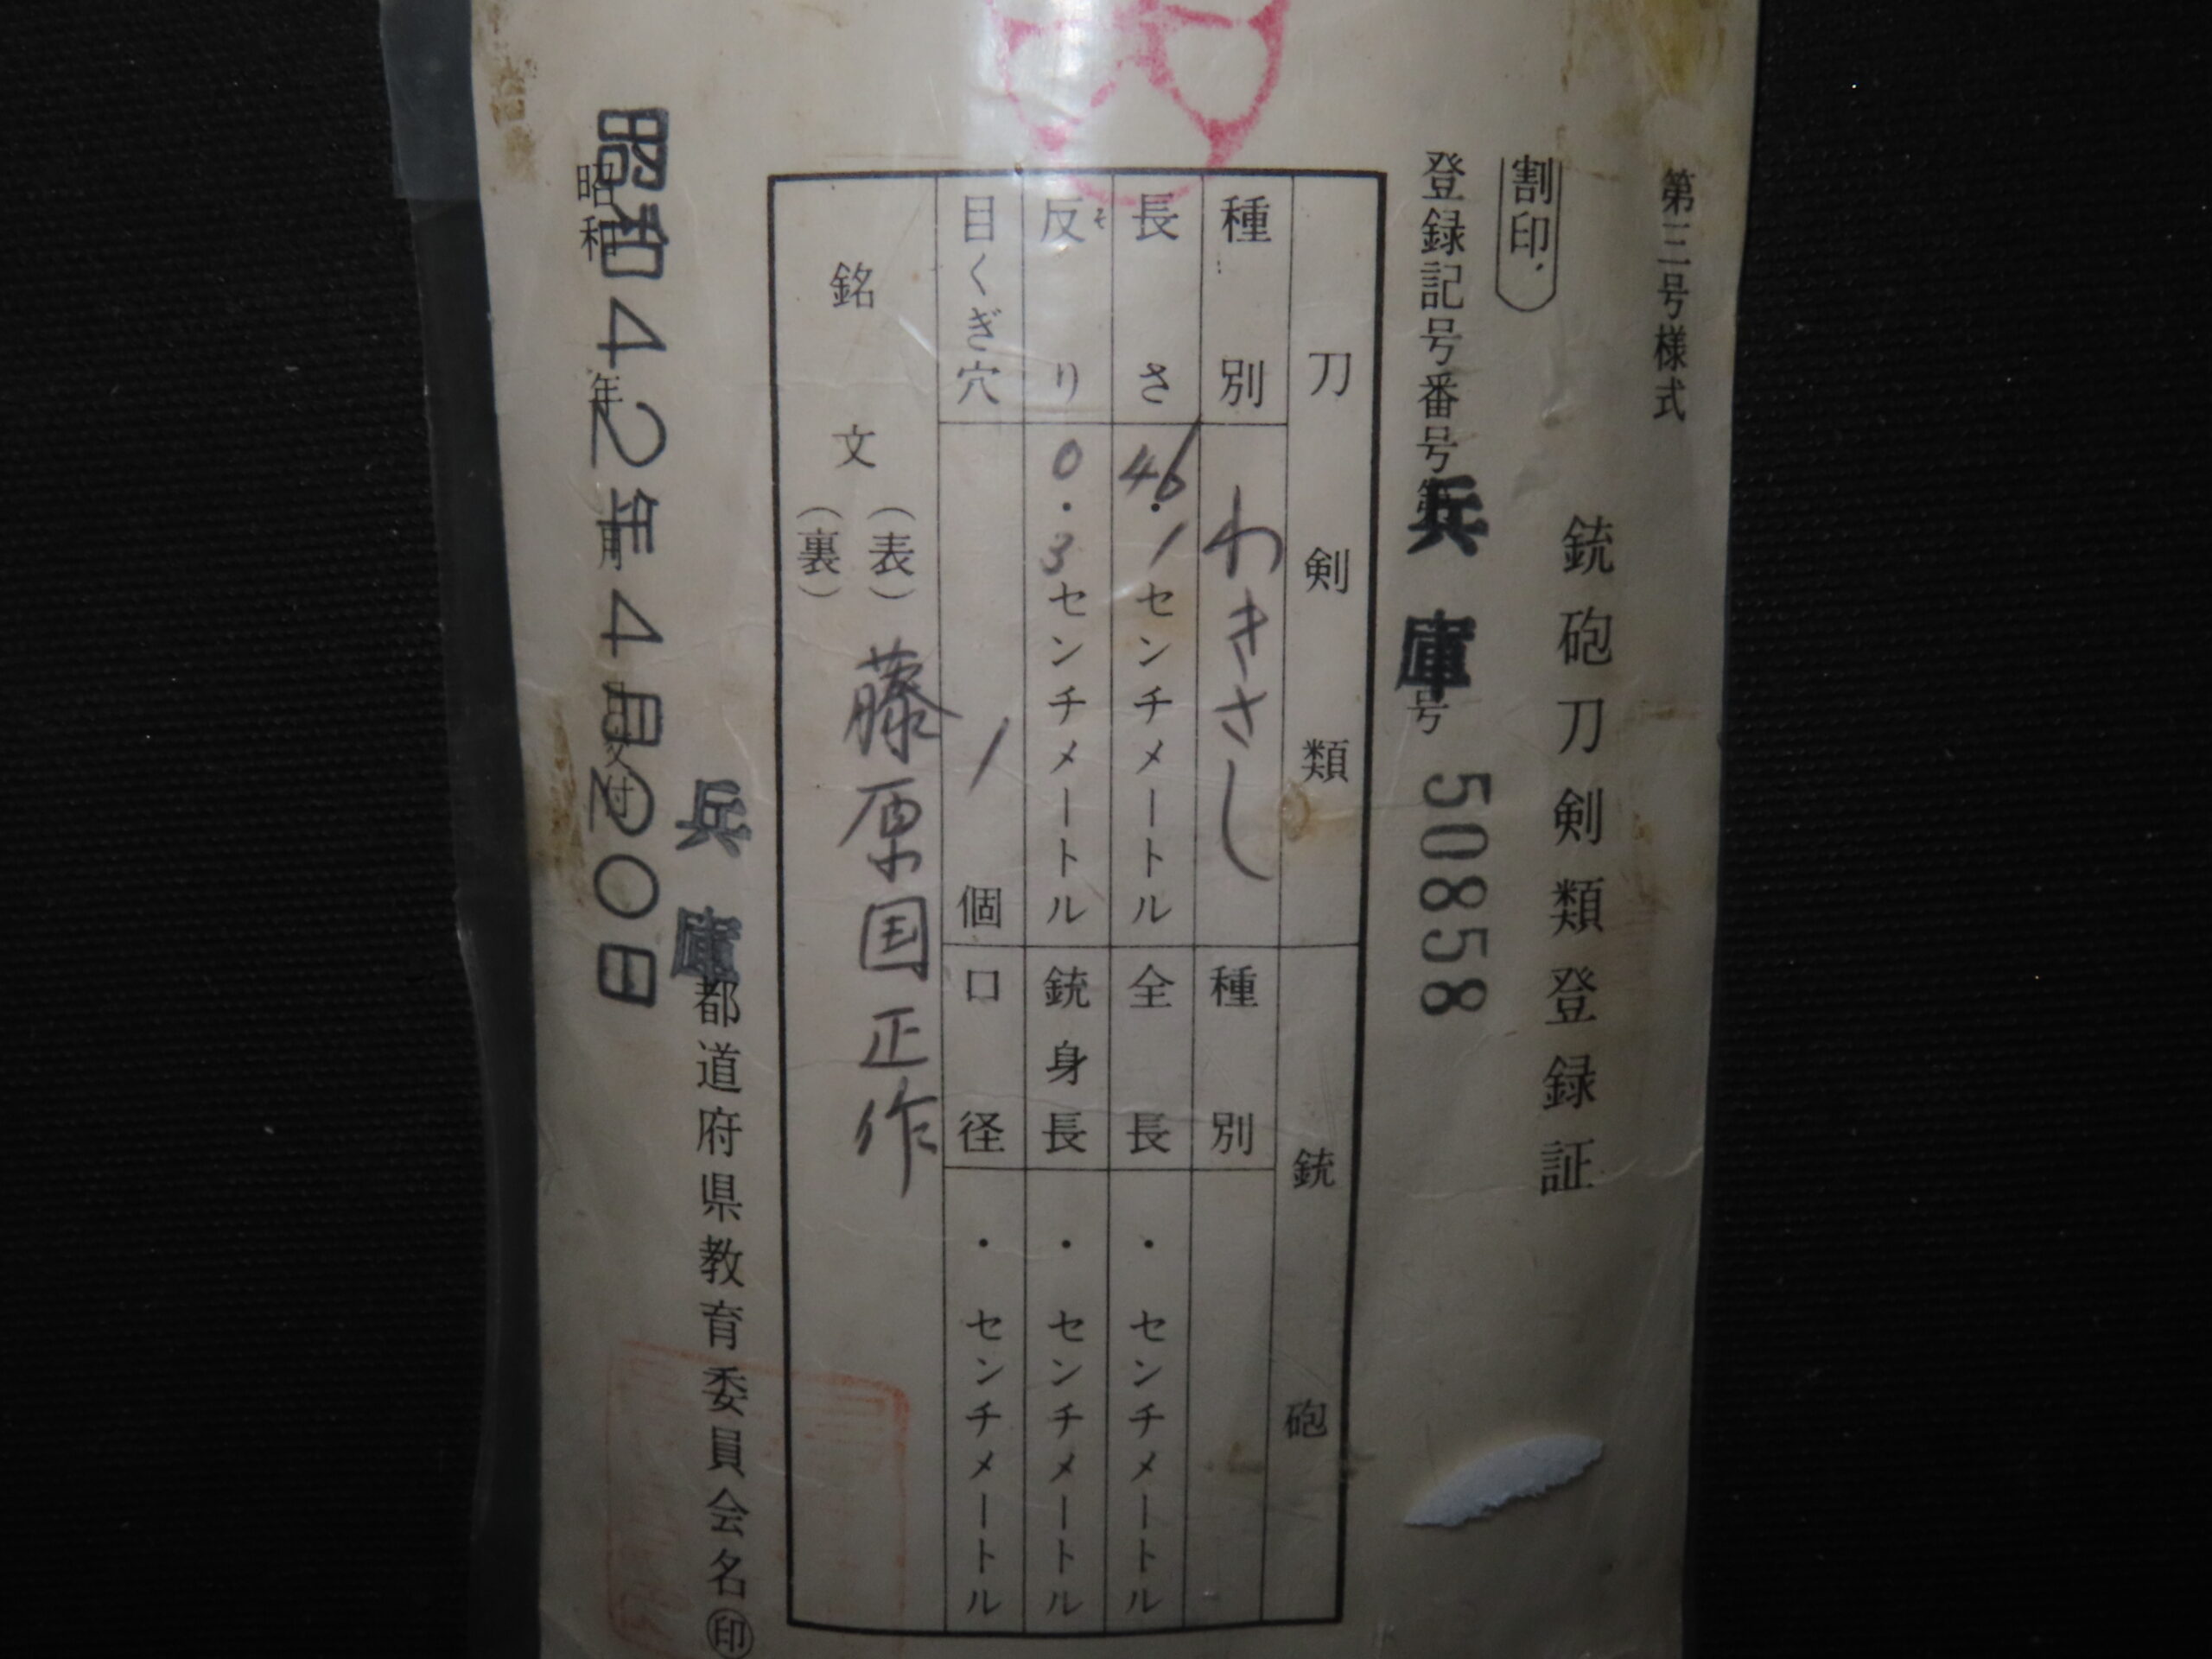 第三号様式
銃砲刀剣類登録証
割印
登録記号番号第 兵庫 号 50858
刀剣類
銃砲
種別 わきさし
種別
長さ 46.1 センチメートル
全長 ・ センチメートル
反り 0.3 センチメートル
そ
銃身長 ・ センチメートル
目くぎ穴 1 個
口径 ・ センチメートル
銘文
(表) 藤原国正作
(裏)
兵庫 都道府県教育委員会名 印
昭和42年4月20日
昭和 年 月 交付